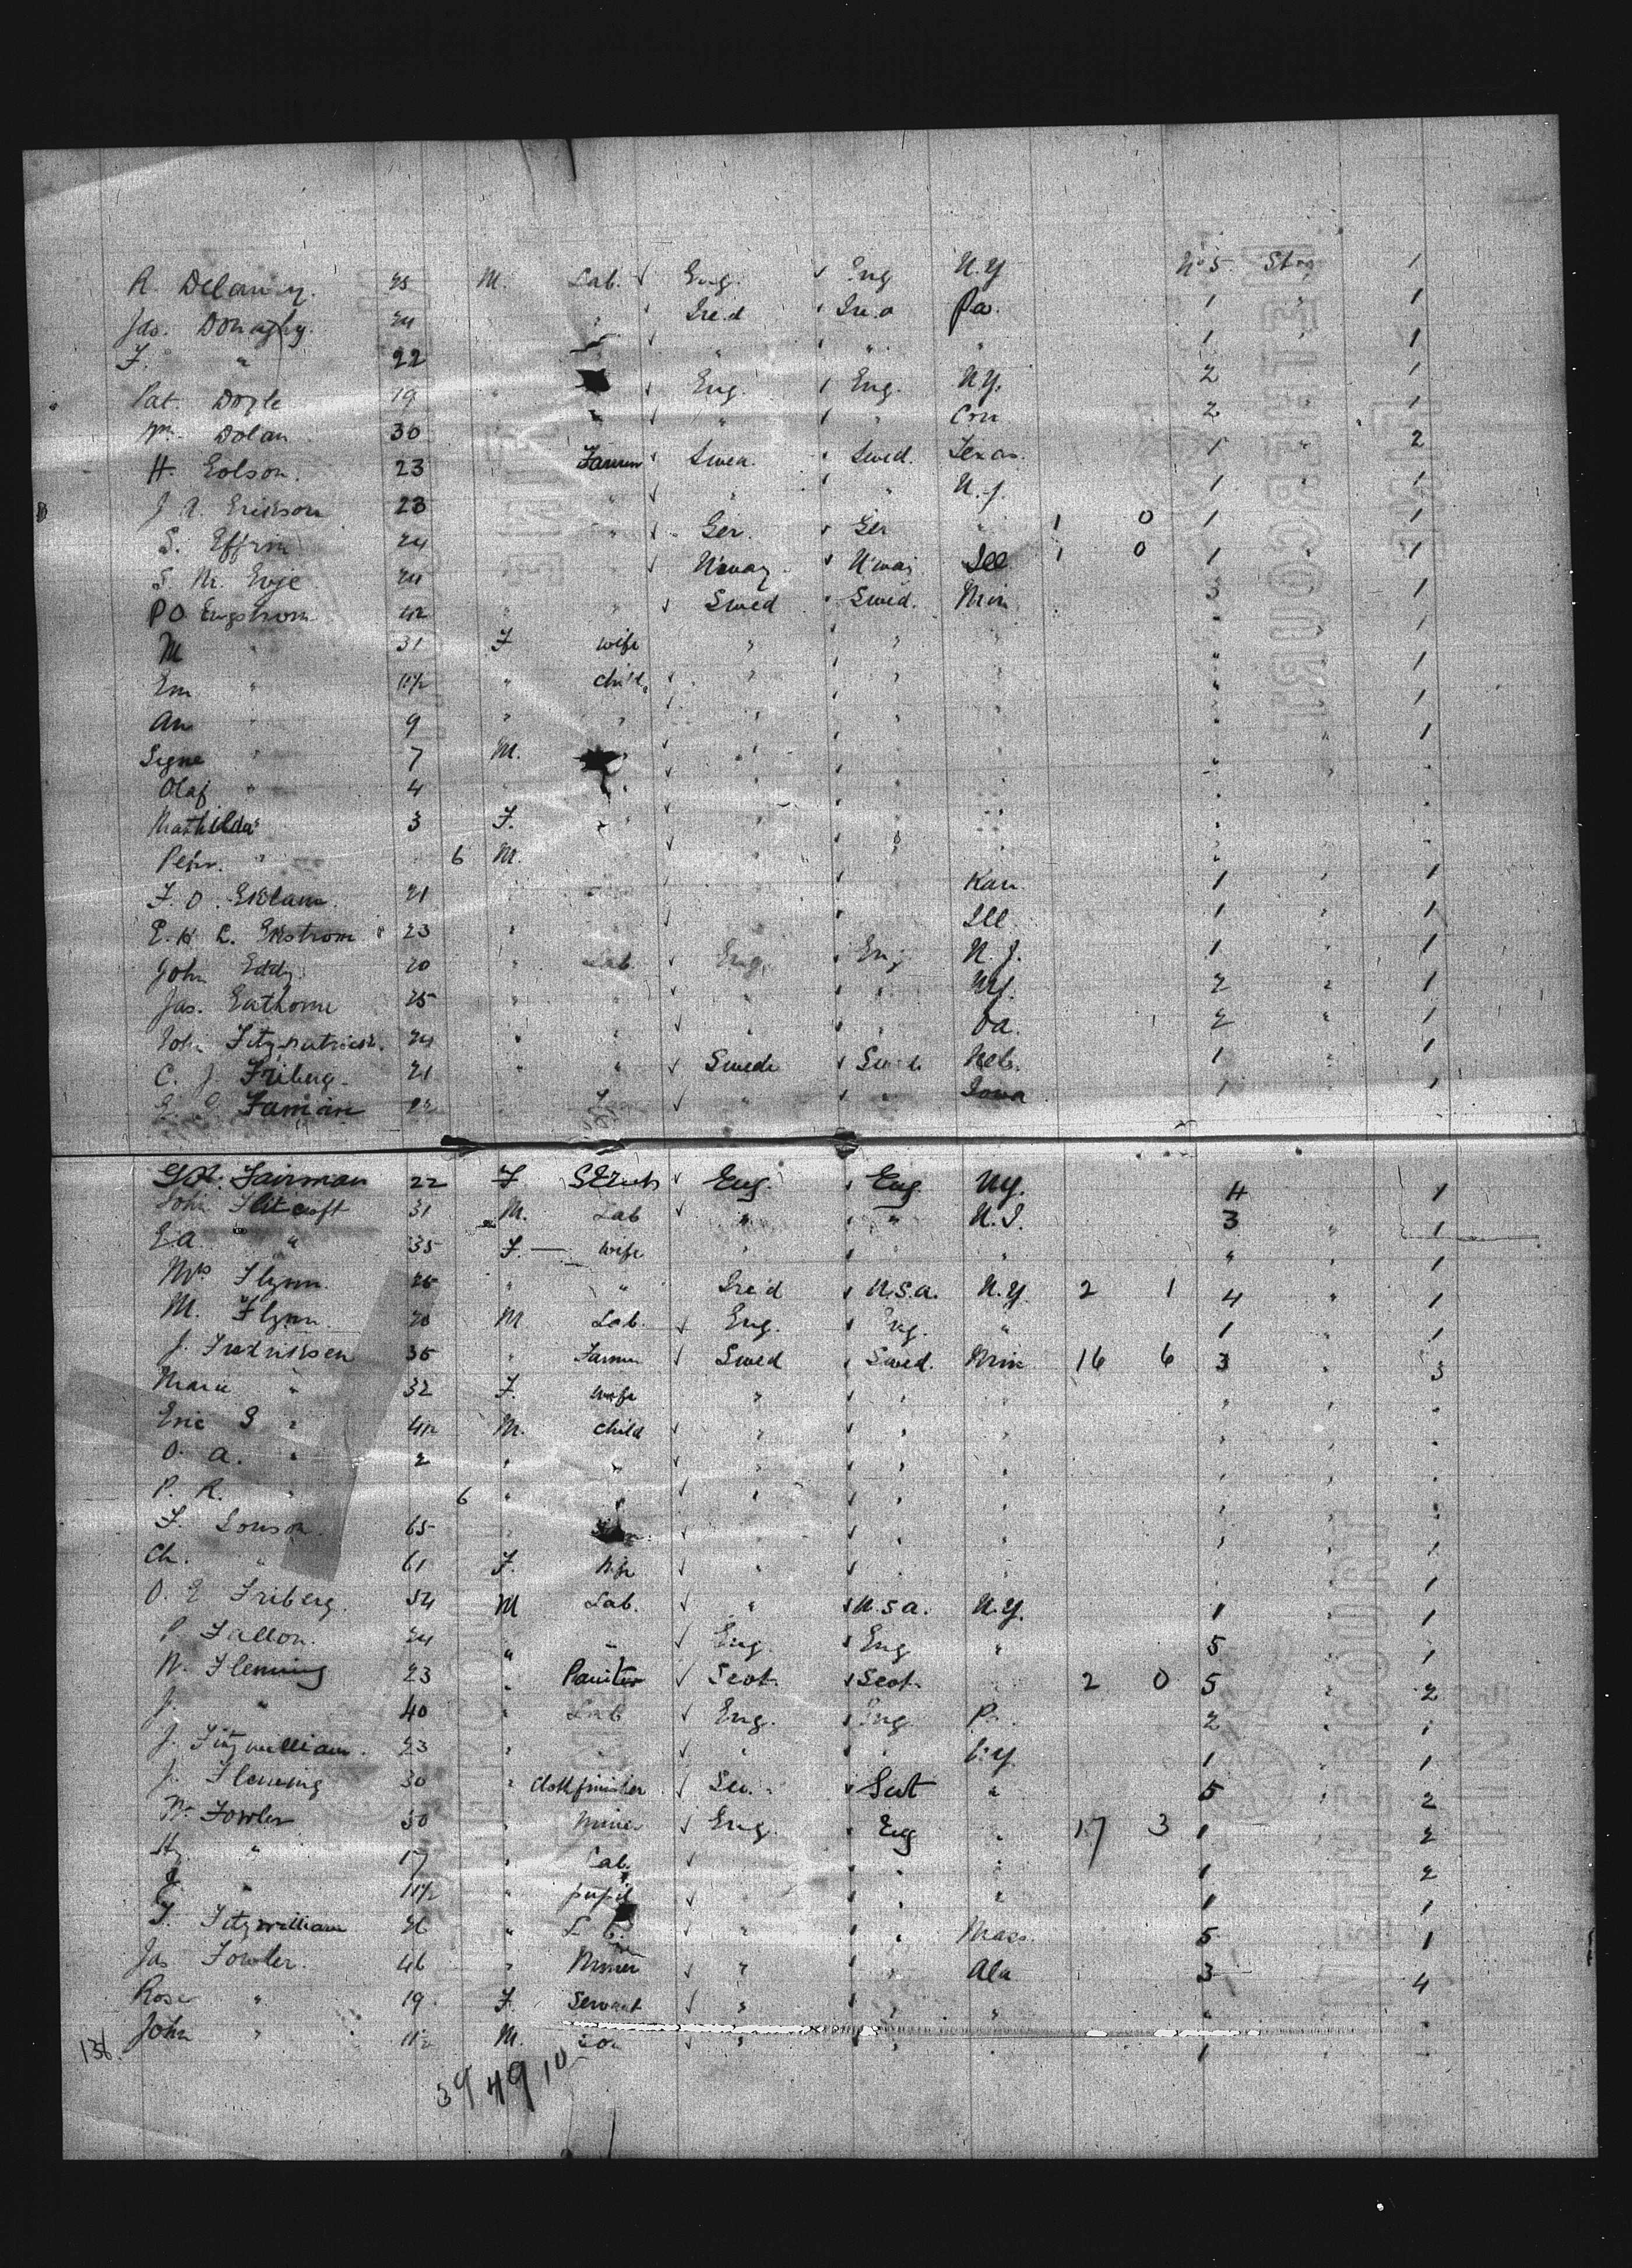 R. Delaney. 25 M. Lab. ✓ Eng. ✓ Eng N.Y No 5. Stg 1
Jas. Donaghy. 24 " ✓ Ire.d ✓ Ire.d Pa. 1 " 1
F. " 22 ✓ " ✓ " " 1 " 1
Pat. Doyle 19 ✓ Eng. ✓ Eng. N.Y. 2 1
Wm. Dolan 30 " ✓ " ✓ " Con 2 1
H. Eolson. 23 Farmer ✓ Swed. ✓ Swed. Texas. 1 " 2
J. A. Erikson 23 " ✓ " ✓ " N.J. 1 " 1
S. Effrin 24 " ✓ Ger. ✓ Ger " 1 0 1 1
S. M. Evje 24 " ✓ N'way. ✓ N'way Ill. 1 0 1 " 1
P O Engstrom 42 " " ✓ Swed ✓ Swed. Min 3 1
M " 31 F wife " " " " 1
Em " 11½ " child ✓ " " " 1
An " 9 " " ✓ " " " 1
Signe " 7 M. ✓ " " " 1
Olaf " 4 " ✓ " " "
Mathilda " 3 F. " ✓ " " "
Pehr. " 6 M. ✓ " "
F. O. Eklam. 21 ✓ Kan. 1 1
E. H. L. Ekstrom 23 " ✓ Ill. 1 " 1
John Eddy 20 " Lab. ✓ Eng. ✓ Eng N.J. 1 " 1
Jas. Eathorne 25 " " ✓ " ✓ " N.Y. 2 " 1
John Fitzpatrick. 24 " " ✓ " ✓ " Pa. 2 " 1
C. J. Friberg. 21 " " ✓ Swede ✓ Swede Neb. 1 " 1
Faman 22 ✓ " ✓ " Iowa 1 1
Fairman 22 F ✓ Eng. ✓ Eng. N.Y. 4 1
John Flitcroft 31 M. Lab ✓ " ✓ " N.J. 3 " 1
E.A. " 35 F. wife " ✓ " " " 1
Mrs Flynn. 25 " " Ire'd ✓ U.S.A. N.Y. 2 1 4 " 1
M. Flynn. 20 M Lab. ✓ Eng. ✓ Eng. " 1 " 1
J. Fredriksen 35 " Farmer ✓ Swed ✓ Swed. Min 16 6 3 " 3
Marie " 32 F. wife " ✓ " " " "
Eric S " 4 M. child ✓ " ✓ " " " "
O. A. " 2 " " ✓ " ✓ " " " "
P. R. " 6 " " ✓ " ✓ " " "
F. Lonson. 65 " ✓ " ✓ " " " 1
Ch. " 61 F. Wife ✓ " ✓ " 1
O. E Friberg. 54 M Lab. ✓ " ✓ U.S.A. N.Y. 1 " 1
P Fallon. 24 " ✓ Eng. ✓ Eng " 5 1
W. Fleming 23 " Painter ✓ Scot. ✓ Scot. " 2 0 5 " 2
J. " 40 " Lab ✓ Eng. ✓ Eng. Pa. 2 1
J. Fitzwilliam. 23 " " ✓ " ✓ " N.Y 1 " 1
J. Fleming 30 " Cloth finisher ✓ Sco. ✓ Scot " 5 2
Wm Fowler 50 " Miner ✓ Eng ✓ Eng " 17 3 1 " 2
Hy. " 17 " Lab. ✓ " " 1 2
J. " 11½ " pupil ✓ " " 1 1
T. Fitzwilliam 26 " ✓ " ✓ " Mass. 5 1
Jas Fowler. 46 " Miner ✓ " ✓ " Ala 3 4
Rose " 19 F. Servant ✓ " ✓ " " " "
John " 11½ M. Son ✓ " ✓ " 1
136.
39 49 10